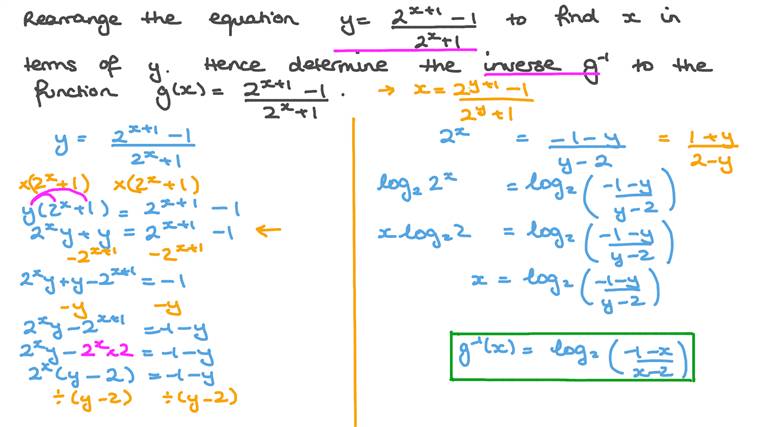 Rearrange the equation y = (2^(x+1) - 1)/(2^x + 1) to find x in
terms of y. Hence determine the inverse g⁻¹ to the
function g(x) = (2^(x+1) - 1)/(2^x + 1). → x = (2^(y+1) - 1)/(2^y + 1)
y = (2^(x+1) - 1)/(2^x + 1)
×(2^x + 1) ×(2^x + 1)
y(2^x + 1) = 2^(x+1) - 1
2^x y + y = 2^(x+1) - 1 ←
-2^(x+1) -2^(x+1)
2^x y + y - 2^(x+1) = -1
-y -y
2^x y - 2^(x+1) = -1 - y
2^x y - 2^x × 2 = -1 - y
2^x (y - 2) = -1 - y
÷(y - 2) ÷(y - 2)
2^x = (-1 - y)/(y - 2) = (1 + y)/(2 - y)
log₂ 2^x = log₂ ((-1 - y)/(y - 2))
x log₂ 2 = log₂ ((-1 - y)/(y - 2))
x = log₂ ((-1 - y)/(y - 2))
g⁻¹(x) = log₂ ((-1 - x)/(x - 2))